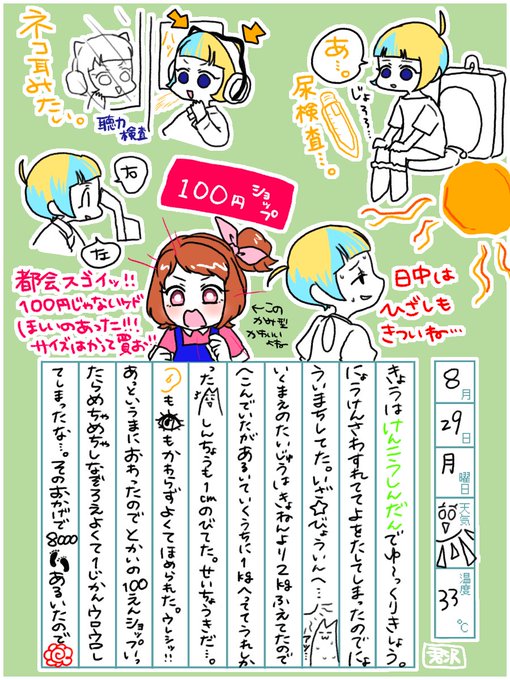 ネコ耳みたい。
聴力
検査
あ…。
じょろろ…
尿検査…。
お
た
100円ショップ
都会スゴイッ!!
100円じゃないケド
ほしいのあった!!!
サイズはかって買お!!
←この
かみ型
かわいい
よね
日中は
ひざしも
きついね…
8月
29日
月曜日
天気
温度
33℃
きょうはけんこうしんだんでゆ〜っくりきしょう。
にょうけんさわすれててよをたしてしまったのでにょ
ういまちしてた。いざ☆びょういんへ…
いくまえのたいじゅうはきょねんより2kgふえてたので
へこんでいたがあるいていくうちに1kgへっててうれしか
った しんちょうも1cmのびてた。せいちょうきだ〜。
も もかわらずよくてほめられた。ウレシッ!!
あっというまにおわったのでとかいの100えんショップいっ
たらめちゃめちゃしなぞろえよくて1じかんウロウロし
てしまったな…。そのおかげで8000 あるいたので
君沢